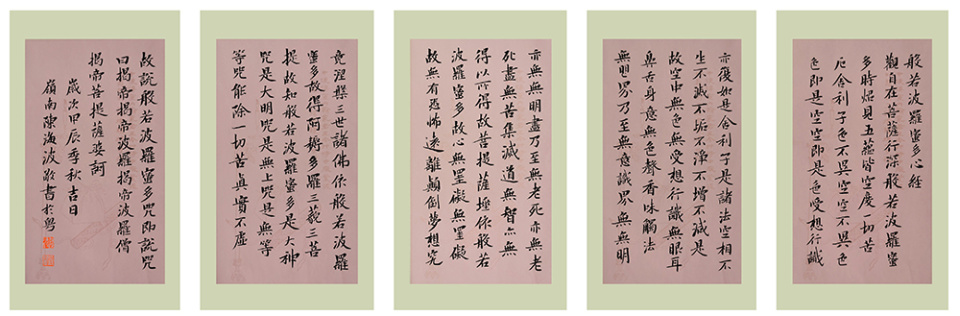 般若波羅蜜多心經
觀自在菩薩行深般若波羅蜜
多時炤見五蘊皆空度一切苦
厄舍利子色不異空空不異色
色即是空空即是色受想行識
亦復如是舍利子是諸法空相不
生不滅不垢不淨不增不減是
故空中無色無受想行識無眼耳
鼻舌身意無色聲香味觸法
無眼界乃至無意識界無無明
亦無無明盡乃至無老死亦無老
死盡無苦集滅道無智亦無
得以所得故菩提薩埵依般若
波羅蜜多故心無罣礙無罣礙
故無有恐怖遠離顛倒夢想究
竟涅槃三世諸佛依般若波羅
蜜多故得阿耨多羅三藐三菩
提故知般若波羅蜜多是大神
咒是大明咒是無上咒是無等
等咒能除一切苦真實不虛
故說般若波羅蜜多咒即說咒
曰揭帝揭帝波羅揭帝波羅僧
揭帝菩提薩婆訶
歲次甲辰季秋吉日
嶺南陳海波敬書於粵